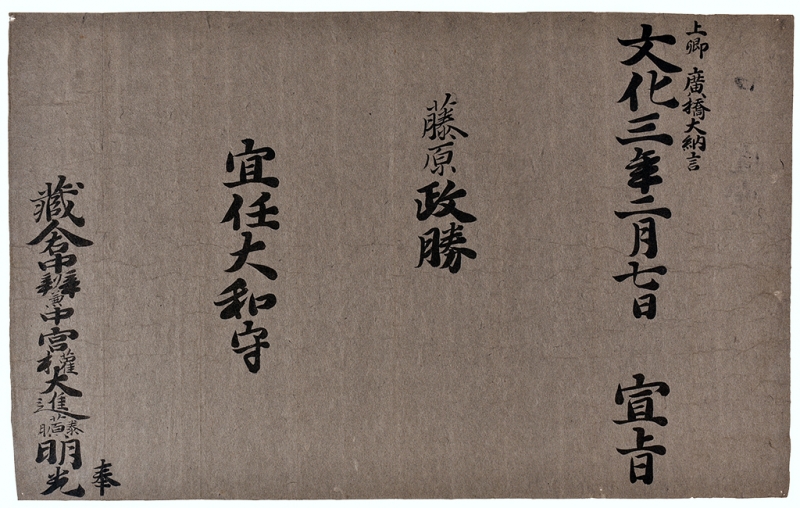 上卿 廣橋大納言
文化三年二月七日 宣旨
藤原政勝
宜任大和守
藏人中辨兼中宮權大進藤原明光奉